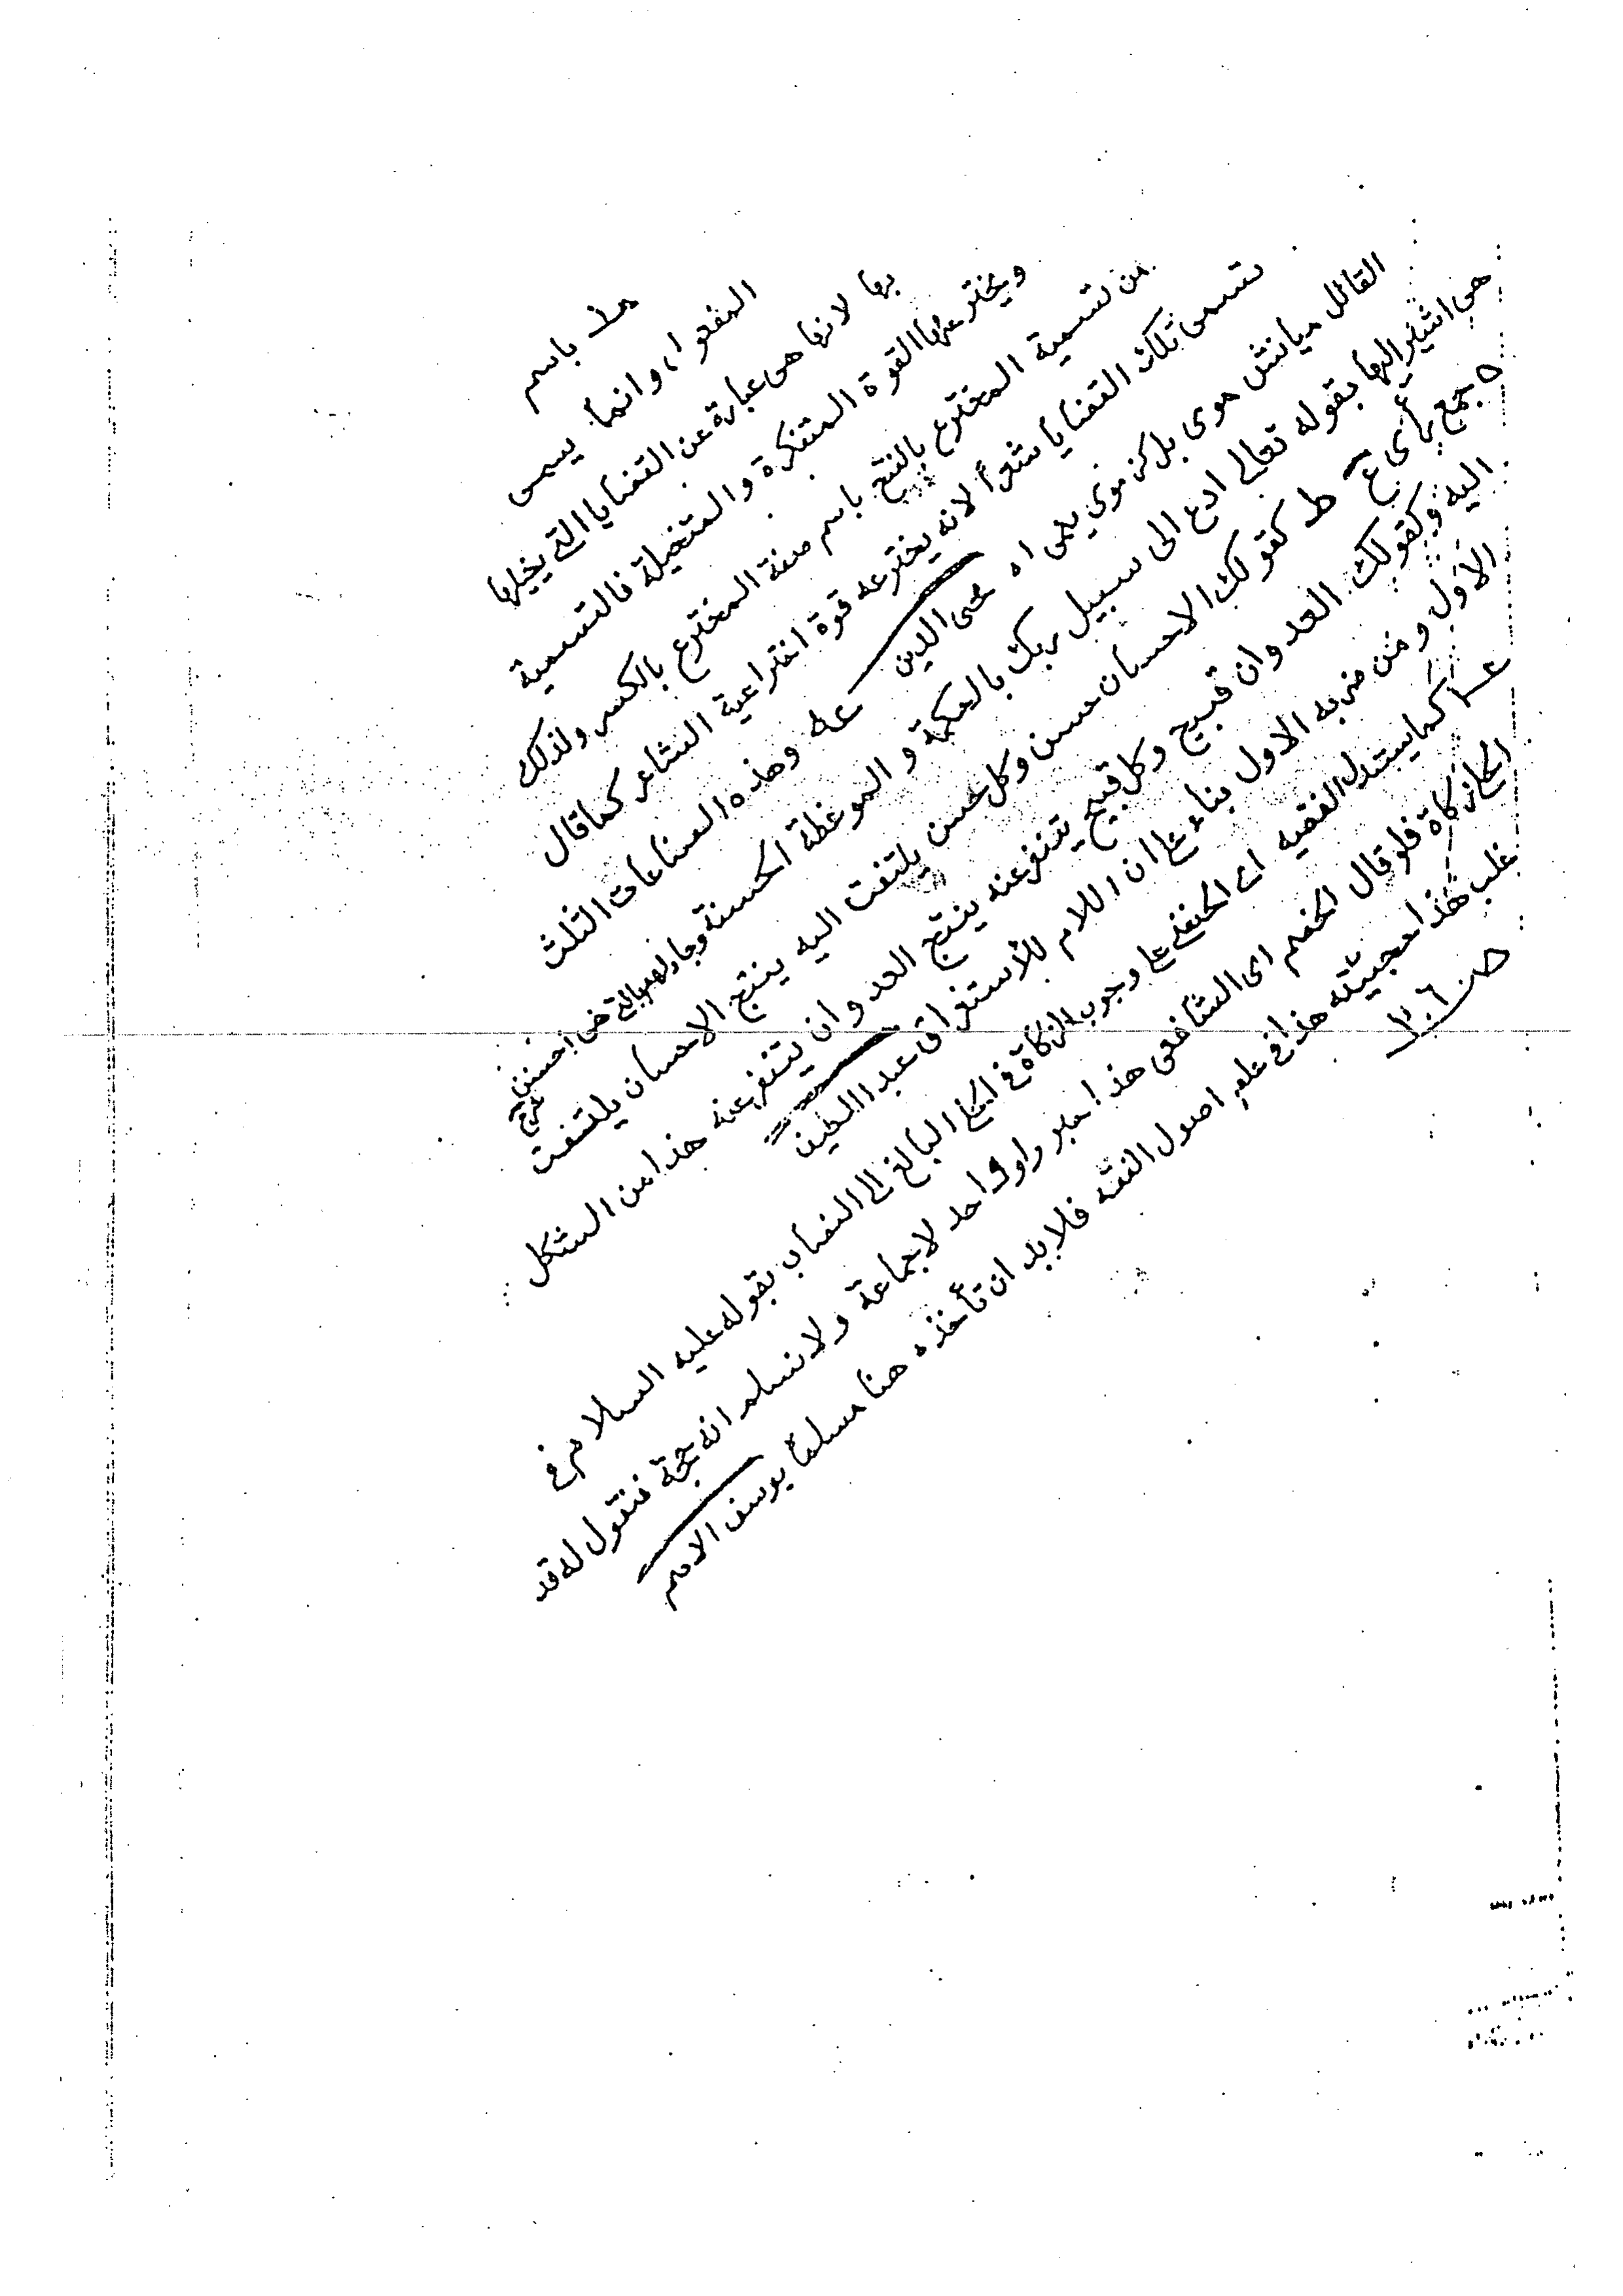 باسم
المفعول وانما يسمى
بها لانها هى عبارة عن القضايا التى يخيلها
ويخترعها القوة المتفكرة والمتخيلة فالتسمية
من تسمية المخترع بالفتح باسم صفة المخترع بالكسر ولذلك
تسمى تلك القضايا شعرا لانه يخترعه قوة اختراعية الشاعر كما قال
القائل ميانش موى بل كز موى يمى اه محى الدين عه وهذه الصناعات الثلث
هى اشير اليها بقوله تعالى ادع الى سبيل ربك بالحكمة والموعظة الحسنة وجادلهم بالتى هى احسن
ه جمع رأى ع ط كقولك الاحسان حسن وكل حسن يلتفت اليه ينتج الاحسان يلتفت
اليه وكقولك العدوان قبيح وكل قبيح يتنفر عنه ينتج العدوان يتنفر عنه هذا من الشكل
الاول ومن ضربه الاول بناء على ان اللام للاستغراق عبد
عـ كما يستدل الفقيه اى الحنفى على وجوب الزكاة فى الحلى البالغ الى النصاب بقوله عليه السلام فى
الحلى زكاة فلو قال الخصم اى الشافعى هذا خبر راو واحد لا جماعة ولا نسلم انه حجة فنقول له قد
غلب هذا حجيته هذا فى علم اصول الفقه فلا بد ان تأخذه هنا مسلما يوسف الاصم